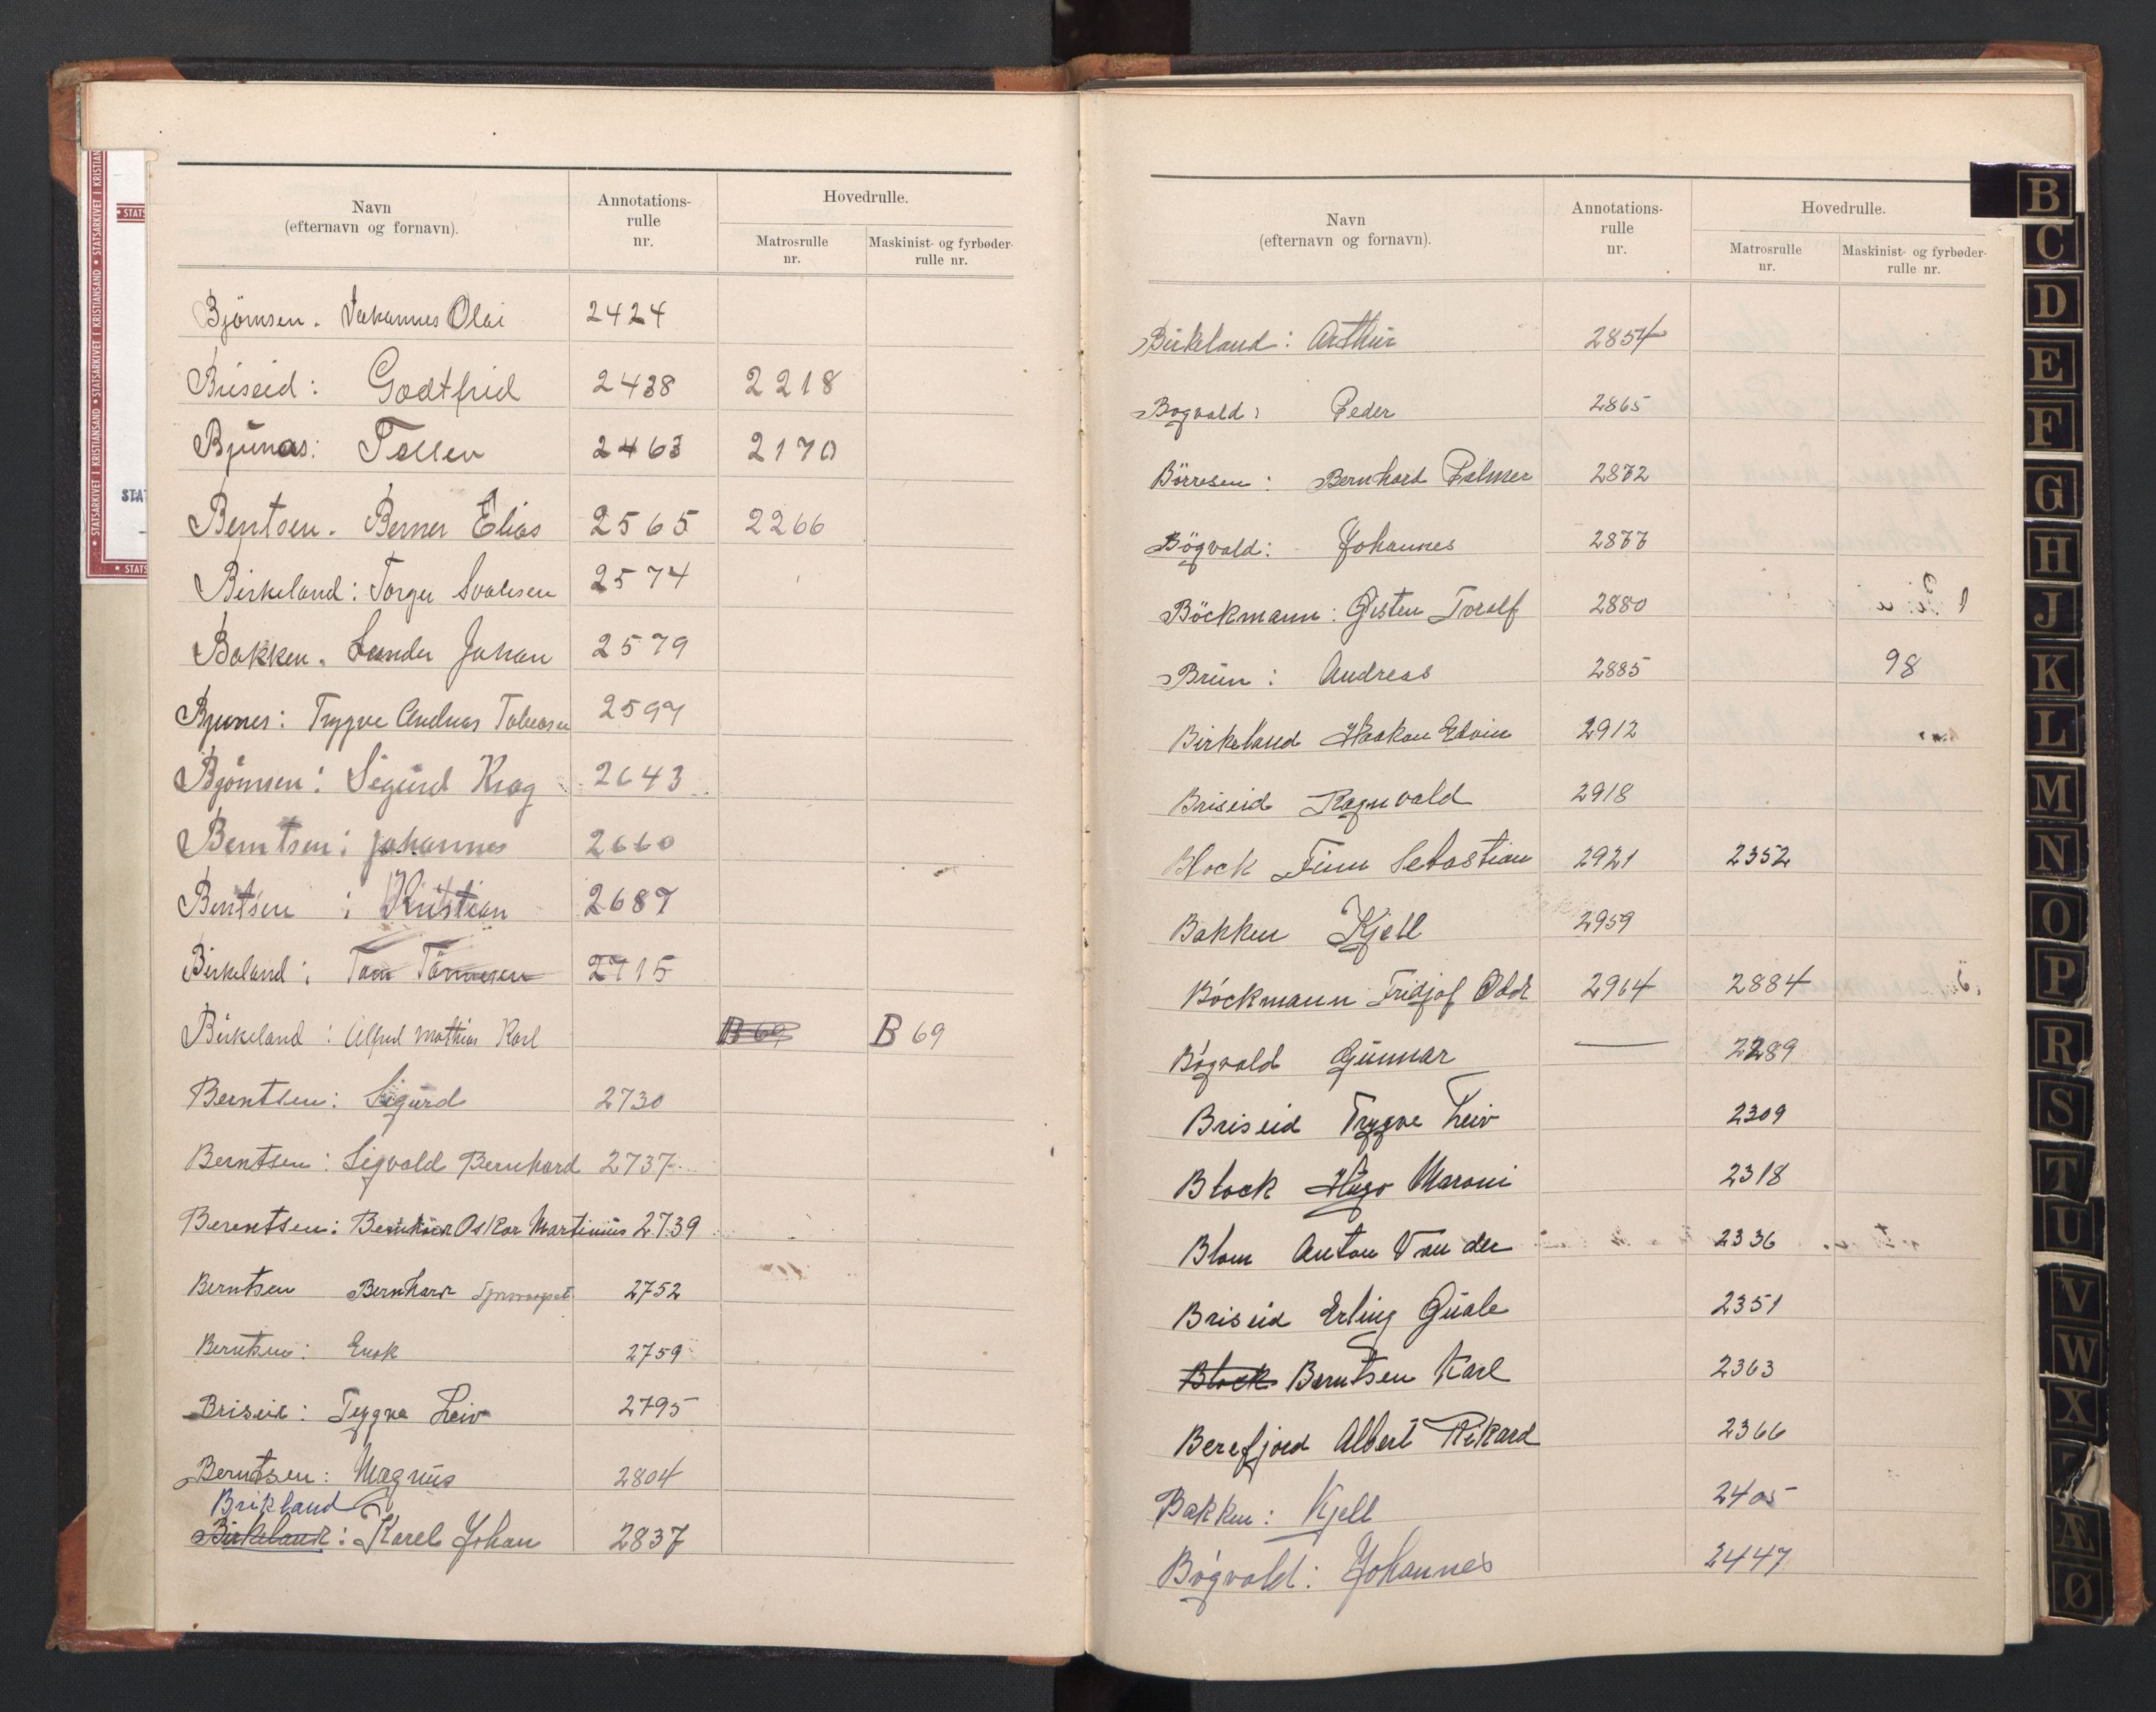 Navn
(efternavn og fornavn).
Annotations-
rulle
nr.
Hovedrulle.
Matrosrulle
nr.
Maskinist- og fyrbøder-
rulle nr.
Björnsen. Johannes Olai 2424
Briseid: Godtfred 2438 2218
Bjunas: Tellev 2463 2170
Bentsen. Berner Elias 2565 2266
Birkeland: Torger 2574
Bakken. Sander Johan 2579
Bjunes: Trygve Andreas Tobiasen 2597
Björnsen: Sigurd Krag 2643
Berntsen: Johannes 2660
Bentsen: Kristian 2687
Birkeland: Tom Tönnesen 2715
Birkeland: Alfred Mathias Karl B 69 B 69
Berntsen: Sigurd 2730
Berntsen: Sigvald Bernhard 2737
Berentsen: Bernhard Oskar Martinius 2739
Berntsen Bernhard 2752
Berntsen: Enok 2759
Briseid: Tygve Leiv 2795
Berntsen: Magnus 2804
Brikland
Birkeland: Karel Johan 2837
Navn
(efternavn og fornavn).
Annotations-
rulle
nr.
Hovedrulle.
Matrosrulle
nr.
Maskinist- og fyrbøder-
rulle nr.
Birkeland: Arthur 2854
Bogvald: Peder 2865
Börresen: Bernhard Palmer 2872
Bögvald: Johannes 2877
Böckmann: Öisten Toralf 2880
Brun: Andreas 2885 98
Birkeland Haakon Edvin 2912
Briseid Ragnvald 2918
Block Finn Sebastian 2921 2352
Bakken Kjell 2959
Böckmann Fridjof Odd 2964 2884
Bögvald Gunnar — 2289
Briseid Trygve Leiv 2309
Block Hugo Maroni 2318
Blom Anton Van der 2336
Briseid Erling Qvale 2351
Block Berntsen Karl 2363
Berefjord Albert Rikard 2366
Bakken: Kjell 2405
Bögvald: Johannes 2447
B
C
D
E
F
G
H
J
K
L
M
N
O
P
R
S
T
U
V
W
X
Æ
Ø
STATSARKIVET I KRISTIANSAND • STATSARKIVET I KRISTIANSAND • STATSARKIVET I KRISTIAN